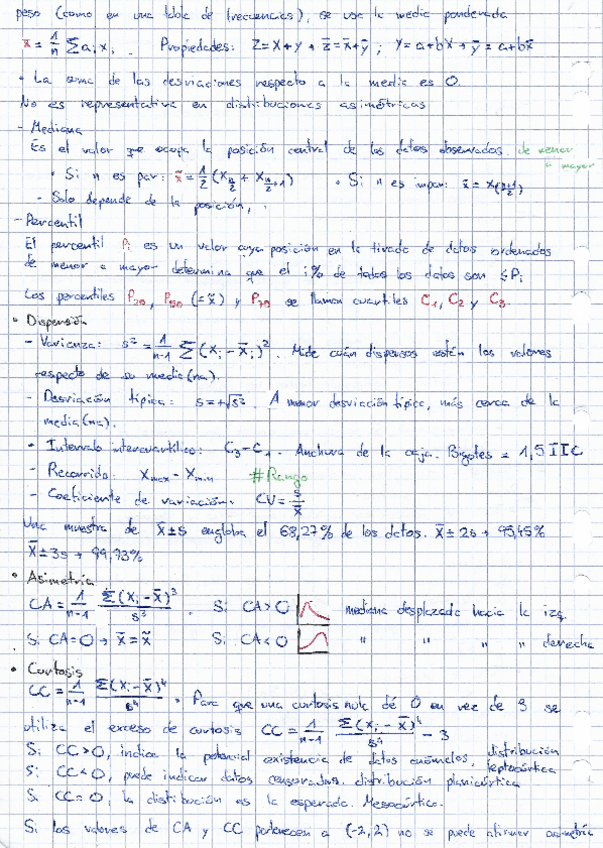 peso (como en una tabla de frecuencias), se usa la media ponderada
x̄ = 1/n Σ aᵢxᵢ. Propiedades: Z=X+Y → z̄=x̄+ȳ ; Y=a+bX → ȳ=a+bx̄
• La suma de las desviaciones respecto a la media es 0.
No es representativa en distribuciones asimétricas
- Mediana
Es el valor que ocupa la posición central de los datos observados. de menor a mayor
• Si n es par: x̃ = 1/2 (x_{n/2} + x_{n/2+1}) • Si n es impar: x̃ = x_{(n+1)/2}
- Solo depende de la posición,
- Percentil
El percentil Pᵢ es un valor cuya posición en la tirada de datos ordenados
de menor a mayor determina que el i% de todos los datos son ≤Pᵢ
Los percentiles P₂₀, P₅₀ (=x̃) y P₇₀ se llaman cuartiles C₁, C₂ y C₃.
• Dispersión
- Varianza: s² = 1/(n-1) Σ(xᵢ-x̄ᵢ)². Mide cuán dispersos están los valores
respecto de su media(na).
- Desviación típica: s=+√s². A menor desviación típica, más cerca de la
media(na).
• Intervalo intercuartílico: C₃-C₁. Anchura de la caja. Bigotes = 1,5 IIC
- Recorrido: Xmax - Xmin #Rango
- Coeficiente de variación: CV = s/x̄
Una muestra de x̄±s engloba el 68,27% de los datos. x̄±2s → 95,45%
x̄±3s → 99,73%
• Asimetría
CA = 1/(n-1) Σ(xᵢ-x̄)³/s³. Si CA>0 mediana desplazada hacia la izq.
Si CA=0 → x̄=x̃ Si CA<0 " " " " derecha
• Curtosis
CC = 1/(n-1) Σ(xᵢ-x̄)⁴/s⁴. Para que una curtosis nula dé 0 en vez de 3 se
utiliza el exceso de curtosis CC = 1/(n-1) Σ(xᵢ-x̄)⁴/s⁴ - 3
Si CC>0, indica la potencial existencia de datos anómalos, distribución leptocúrtica
Si CC<0, puede indicar datos censurados. distribución planicúrtica
Si CC=0, la distribución es la esperada. Mesocúrtica.
Si los valores de CA y CC pertenecen a (-2,2) no se puede afirmar asimetría